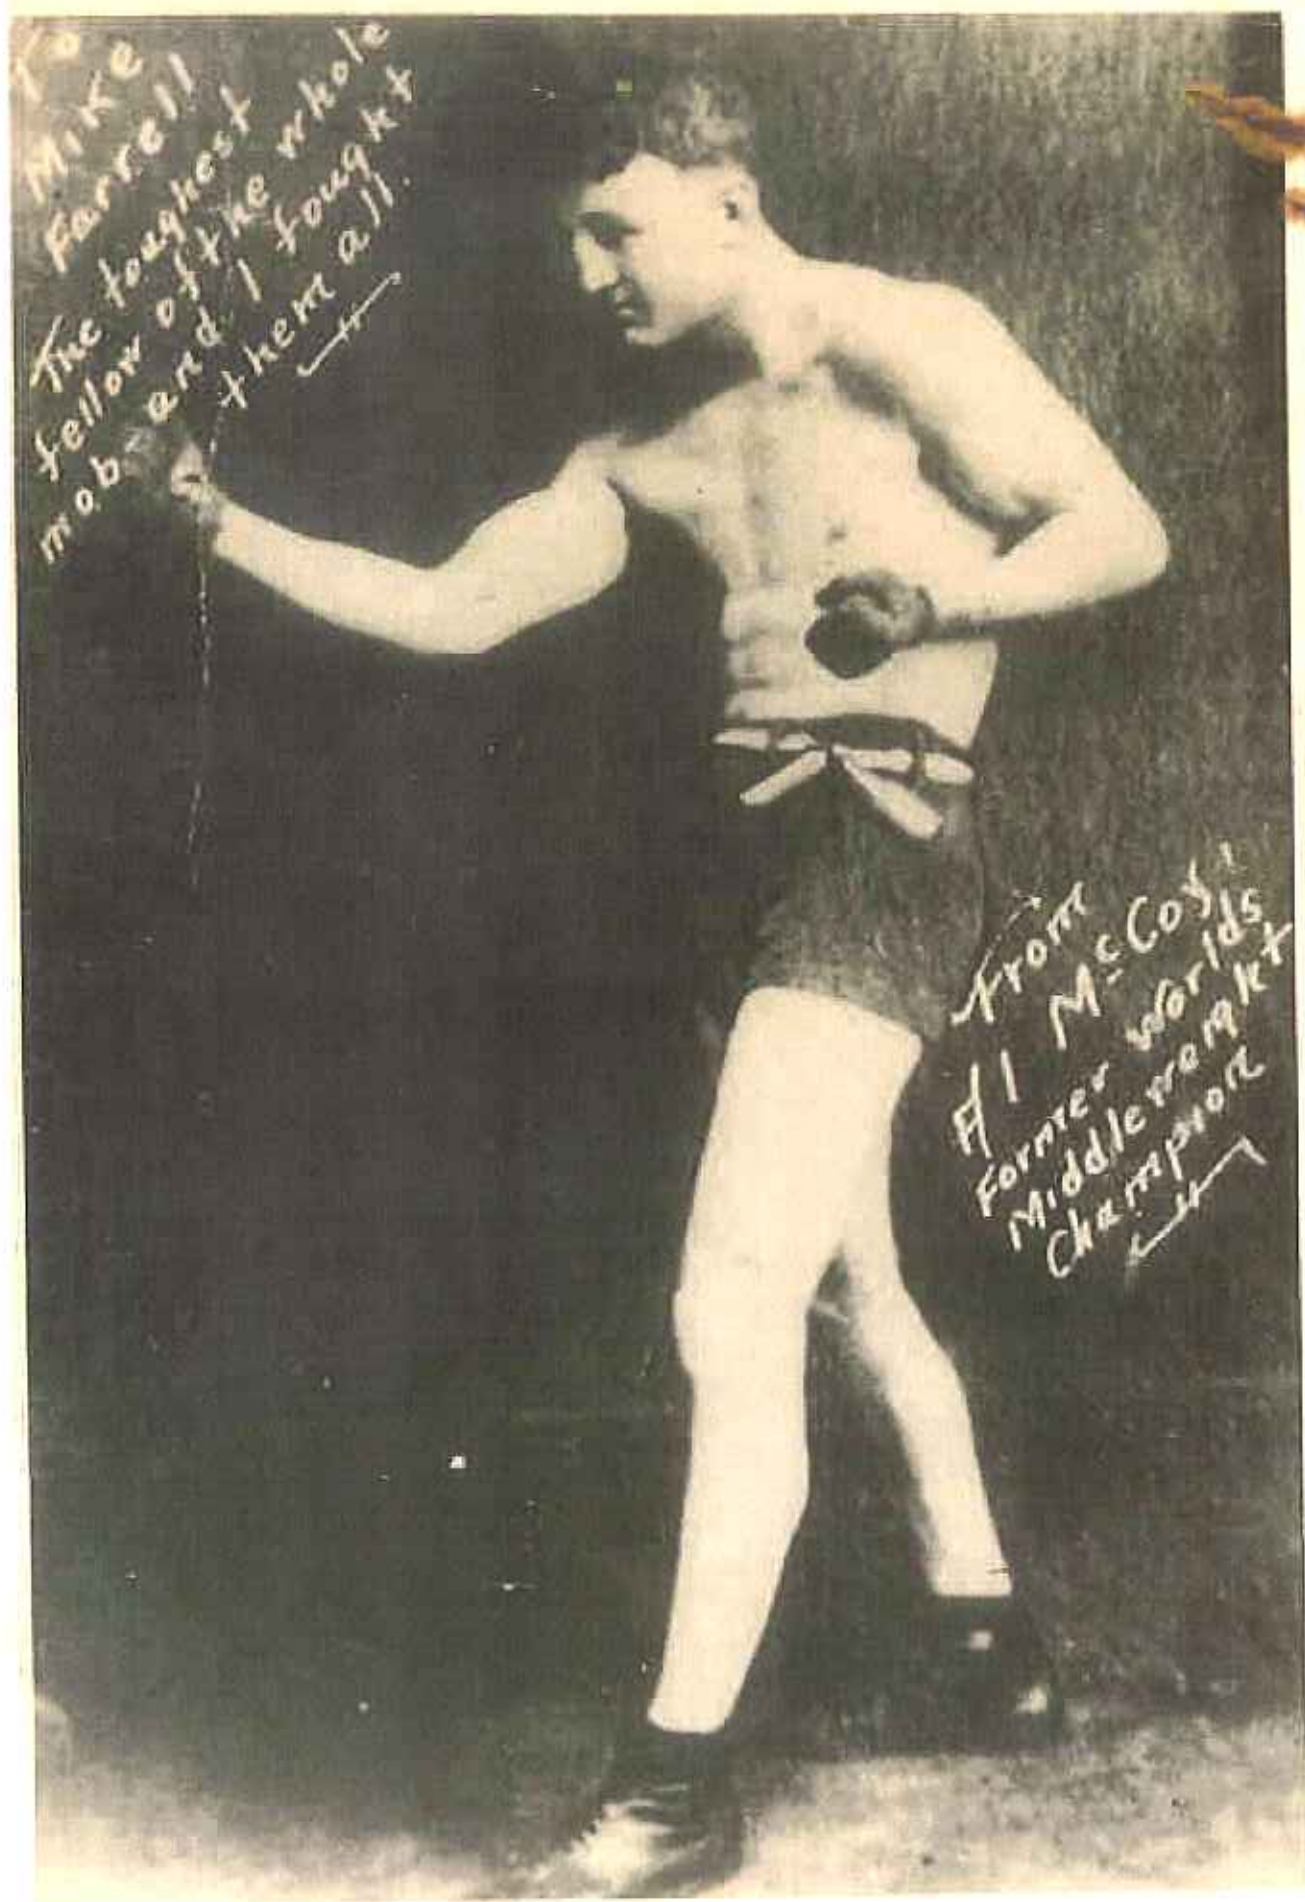 To
Mike
Farrell
The toughest
fellow of the whole
mob - and I fought
them all.
From
Al McCoy,
Former Worlds
Middleweight
Champion